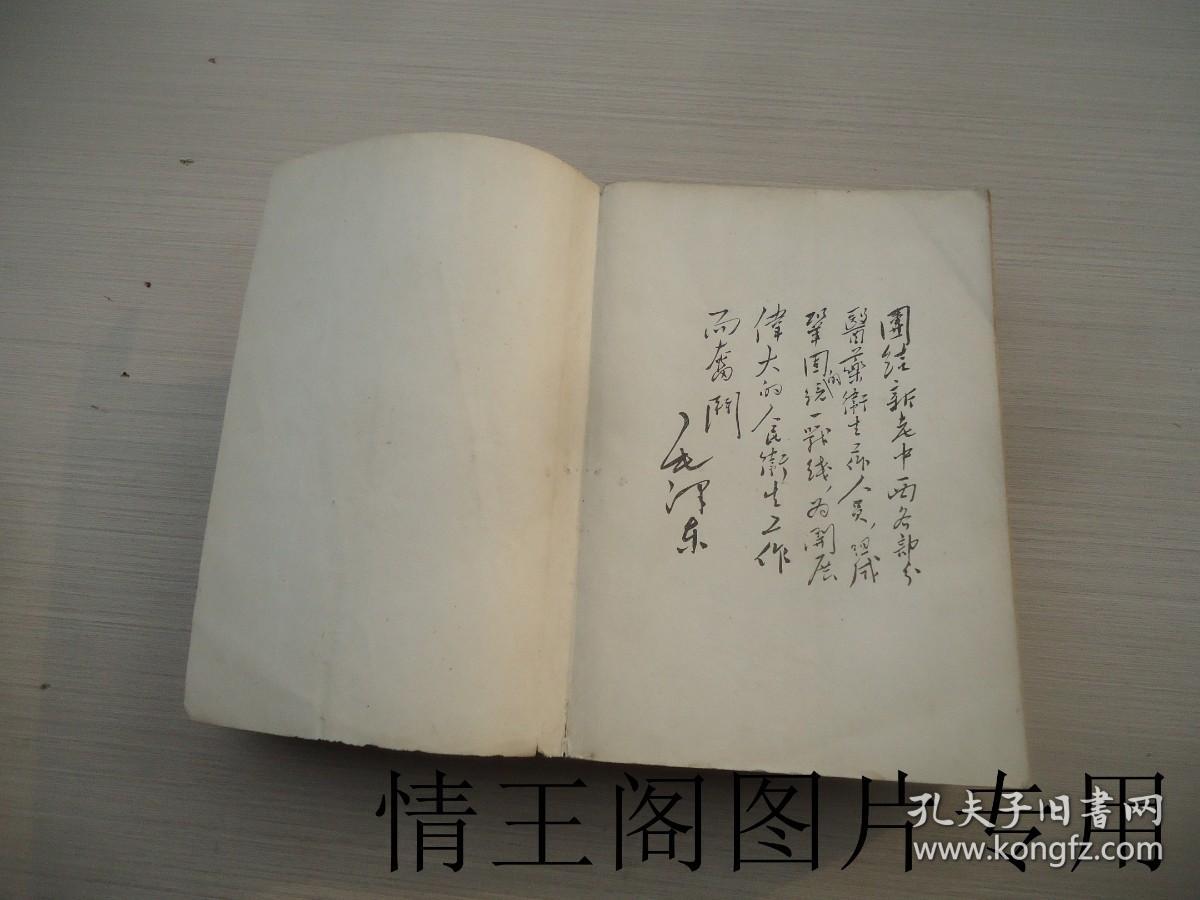 團结新老中西各部分
醫藥衛生工作人員，组成
鞏固的统一戰线，为開展
偉大的人民衛生工作
而奮鬥
毛泽东
情王阁图片专用
孔夫子旧书网
www.kongfz.com